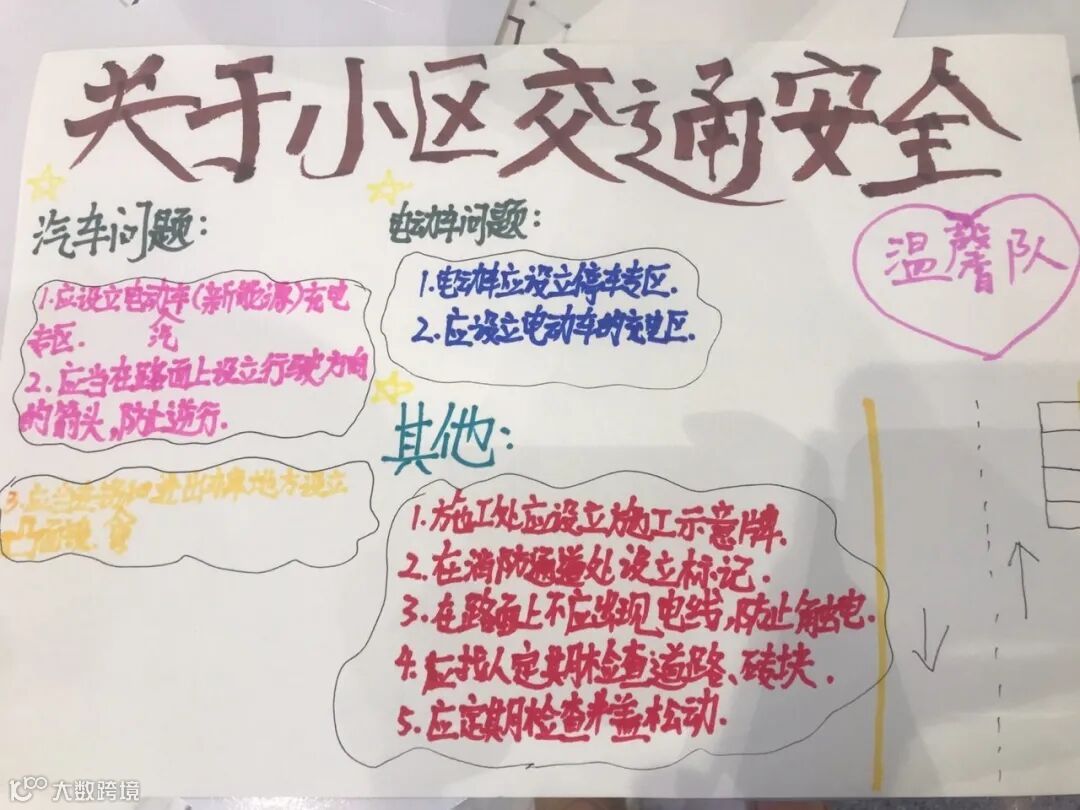 关于小区交通安全
汽车问题:
1.应设立电动车(新能源)充电
汽
专区.
2.应当在路面上设立行驶方向
的箭头,防止逆行.
3.应当在
进出
地方设立
凸面镜.
电动车问题:
1.电动车应设立停车专区.
2.应设立电动车的充电区.
温馨队
其他:
1.施工处应设立施工示意牌.
2.在消防通道处设立标记.
3.在路面上不应出现电线,防止触电.
4.应找人定期检查道路、砖块.
5.应定期检查井盖松动.
大数跨境